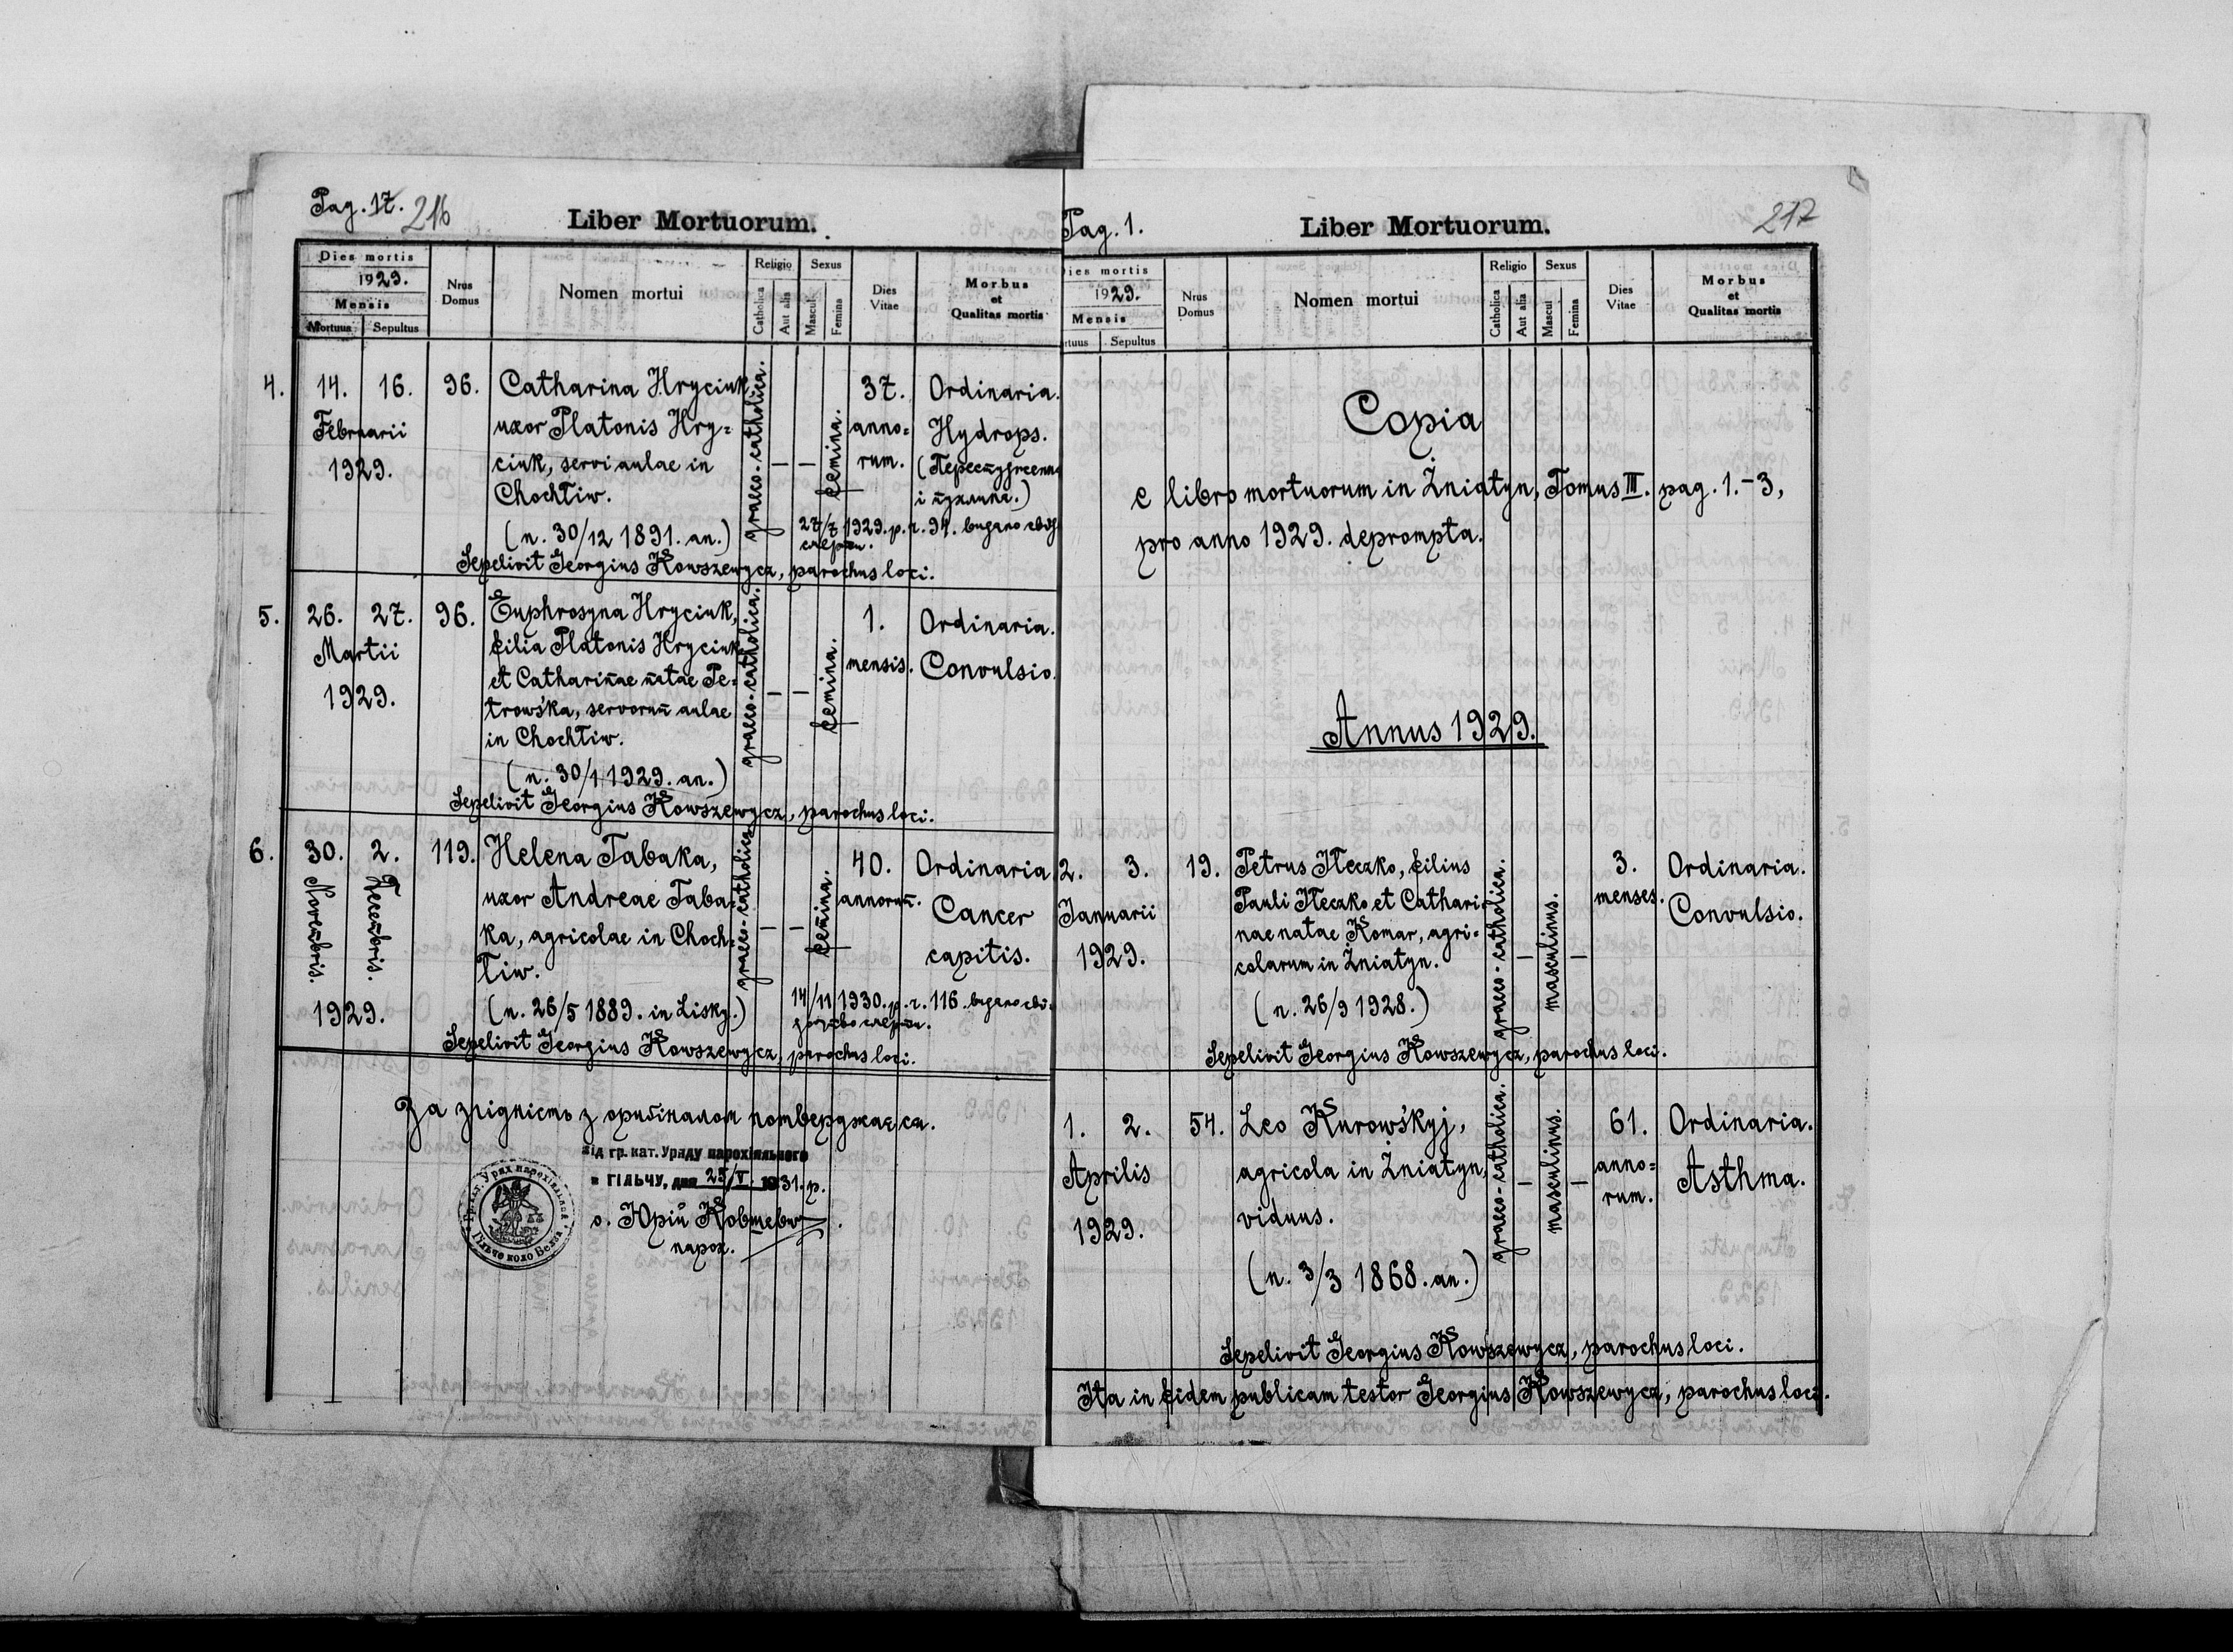 Pag. 17. 216
Liber Mortuorum.
Dies mortis
1929.
Mensis
Mortuus Sepultus
Nrus Domus
Nomen mortui
Religio
Catholica
Aut alia
Sexus
Mascul
Femina
Dies Vitae
Morbus
et
Qualitas mortis
4. 14. 16. 96. Catharina Hryciuk, 37. Ordinaria.
Februarii uxor Platonis Hry= anno= Hydrops.
1929. ciuk, servi aulae in — — rum.
Chochliw. і пухлина.)
graeco-catholica.
femina.
(n. 30/12 1891. an.) 27/7 1929. р. ч. 94. видано свід.
смерти.
Sepelivit Georgius Kowszewycz, parochus loci.
5. 26. 27. 96. Euphrosyna Hryciuk, 1. Ordinaria.
Martii filia Platonis Hryciuk mensis. Convulsio.
1929. et Catharinae natae Pe=
trowśka, servorum aulae — —
in Chochliw.
graeco-catholica.
femina.
(n. 30/1 1929. an.)
Sepelivit Georgius Kowszewycz, parochus loci.
6. 30. 2. 119. Helena Tabaka, 40. Ordinaria.
Novembris. Decembris. uxor Andreae Taba= annorum. Cancer
ka, agricolae in Choch= — — capitis.
liw.
graeco-catholica
femina.
1929. (n. 26/5 1889. in Lisky.) 14/11 1930. р. ч. 116. видано сві=
доцтво смерти.
Sepelivit Georgius Kowszewycz, parochus loci.
За згідність з ориґіналом потверджаєся.
Від гр. кат. Уряду парохіяльного
в ГІЛЬЧУ, дня 25/V 1931. р.
о. Юрій Ковшевич
парох.
Гр.-кат. Уряд парохіяльний
Гільче коло Белза
Pag. 1. 217
Liber Mortuorum.
Dies mortis
1929.
Mensis
rtuus Sepultus
Nrus Domus
Nomen mortui
Religio
Catholica
Aut alia
Sexus
Mascul
Femina
Dies Vitae
Morbus
et
Qualitas mortis
Copia
e libro mortuorum in Żniatyn, Tomus III. pag. 1.-3,
pro anno 1929. deprompta.
Annus 1929.
2. 3. 19. Petrus Kleczko, filius 3. Ordinaria.
Januarii Pauli Kleczko et Cathari= menses. Convulsio.
1929. nae natae Komar, agri=
colarum in Żniatyn. — —
graeco-catholica.
masculinus.
(n. 26/9 1928.)
Sepelivit Georgius Kowszewycz, parochus loci.
1. 2. 54. Leo Kurowśkyj, 61. Ordinaria.
Aprilis agricola in Żniatyn, anno= Asthma.
1929. viduus. — — rum.
graeco-catholica.
masculinus.
(n. 3/3 1868. an.)
Sepelivit Georgius Kowszewycz, parochus loci.
Ita in fidem publicam testor Georgius Kowszewycz, parochus loci.